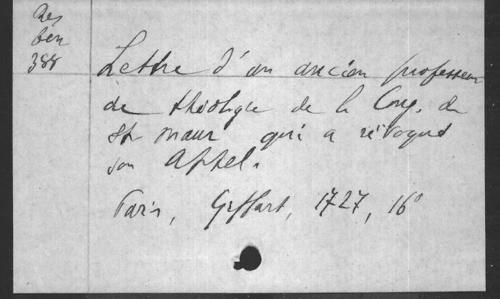 Res
ben
388
Lettre d'un ancien professeur
de théologie de la Cong. de
St Maur qui a révoqué
son Appel.
Paris, Giffart, 1727, 16°